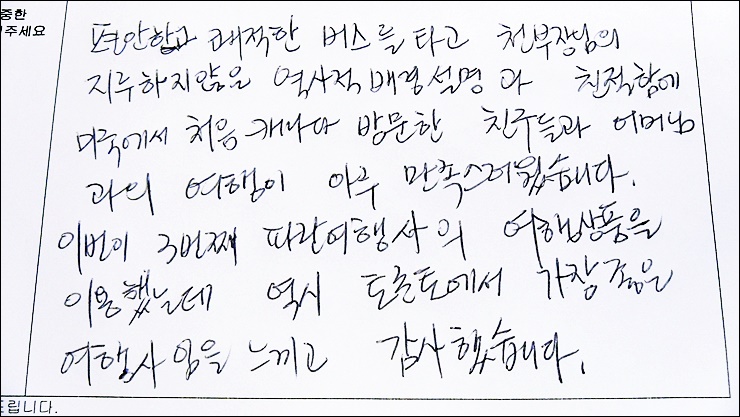 중한
주세요
편안하고 쾌적한 버스를 타고 천부장님의
지루하지않은 역사적배경설명과 친절함에
미국에서 처음 캐나다 방문한 친구들과 어머님
과의 여행이 아주 만족스러웠습니다.
이번이 3번째 파란여행사의 여행상품을
이용했는데 역시 토론토에서 가장 좋은
여행사임을 느끼고 감사했습니다.
드립니다.